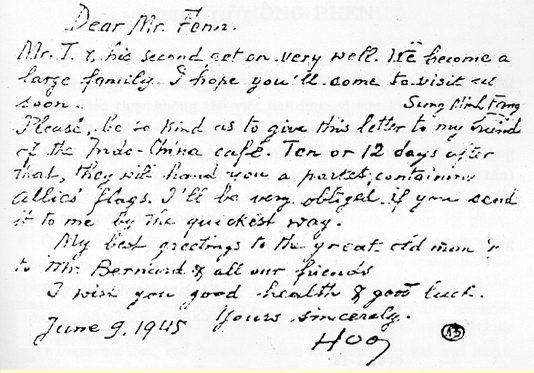 Dear Mr. Fenn.
Mr. T. & his second get on very well. We become a
large family. I hope you'll come to visit us
soon.
Please, be so kind as to give this letter to my friend
of the Indo-China café. Ten or 12 days after
that, they will hand you a parket, containing
allies' flags. I'll be very obliged if you send
it to me by the quickest way.
My best greetings to the great old man &
to Mr. Bernard & all our friends
I wish you good health & good luck.
Yours sincerely.
June 9. 1945
Hoo